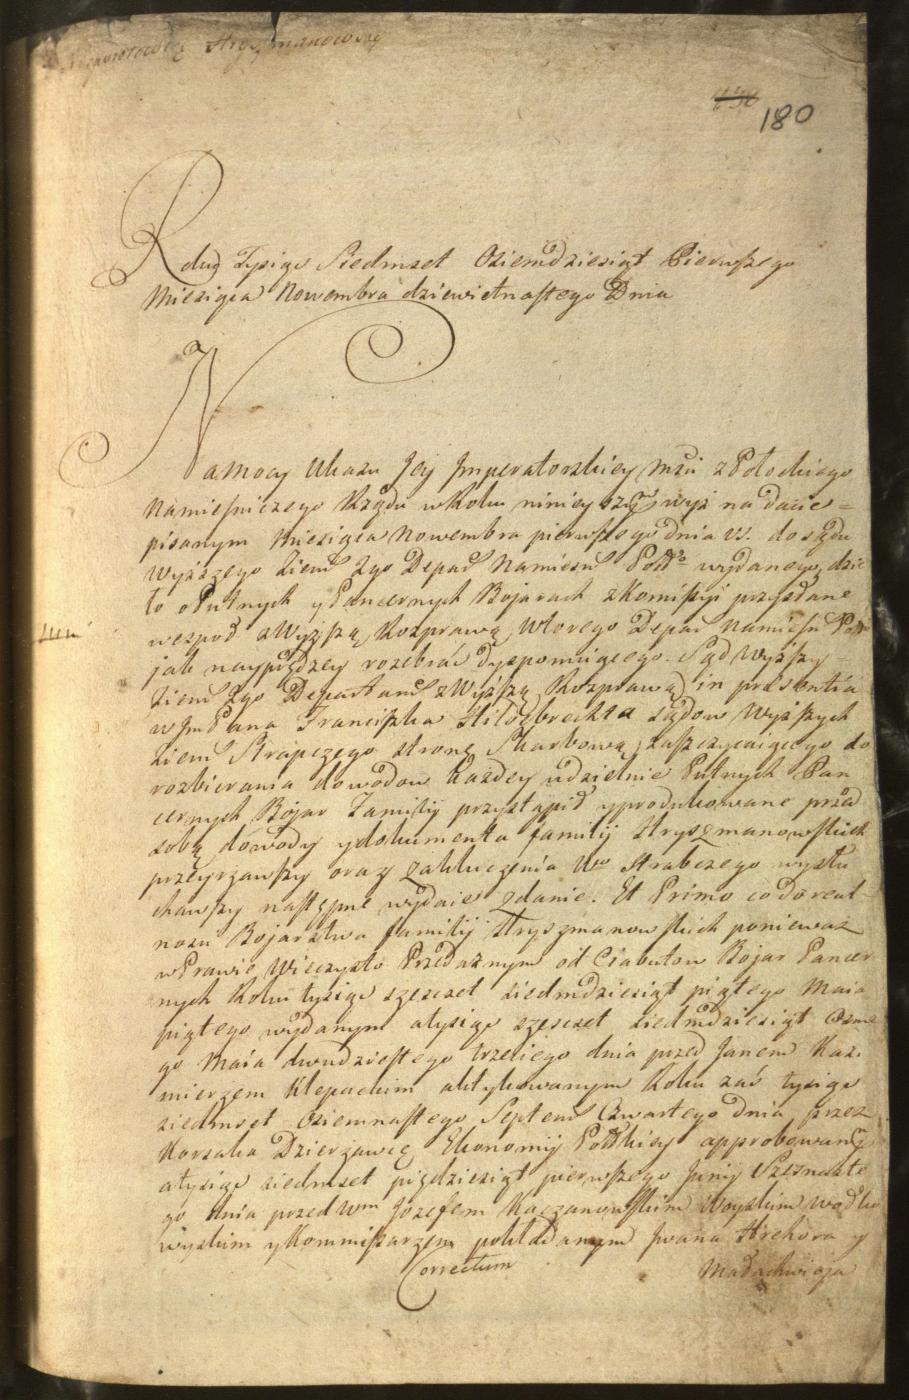 Stryzmanowskiey
180
Roku Tysiąc Siedmset Osiemdziesiąt Pierwszego
Miesiąca Nowembra dziewiętnastego Dnia
Na mocy Ukazu Jey Imperatorskiey Mści z Połockiego
Namiesniczego Rządu w Roku ninieyszę wyż na dacie =
pisanym Miesiąca Nowembra pierwszego dnia V.S. do Sądu
Wyższego Ziem 2go Depar Namiesn Połł wydanego, dzie
ło o Putnych y Pancernych Bojarach z Komissyi przysłane
wespoł z Wyższą Rozprawą Wtorego Depar Namiesn Połł
jak nayprędzey rozebrać dysponuiącego. Sąd Wyższy
Ziem 2go Departam z Wyższą Rozprawą in præsentia
W Jmć Pana Franciszka Hiłdebrechta Sądow Wyższych
Ziem Strapczego stronę Skarbową zaszczycaiącego do
rozbierania dowodow każdey udzielnie Putnych Pan
cernych Bojar Familij przystąpił, y produkowane przed
sobą dowody y dokumenta familij Stryzmanowskich
przeyrzawszy oraz zakluczenia Wo Strabczego wysłu
chawszy następne wydaie zdanie. Et Primo co do real
nosci Bojarstwa familij Stryszmanowskich ponieważ
w Prawie Wieczysto Przedażnym od Ciabutow Bojar Pancer
nych Roku tysiąc szescset siedmdziesiąt piątego Maia
piątego wydanym a tysiąc szescset siedmdziesiąt osme
go Maia dwudziestego trzeciego dnia przed Janem Kazi
mierzem Klepackim aktykowanym Roku zaś tysiąc
siedmset Osiemnastego Septem Czwartego dnia przez
Korsaka Dzierżawcę Ekonomij Połłkiey approbowaną
a tysiąc siedmset pięćdziesiąt pierwszego Junij Szesnaste
go dnia przed Wm Jozefem Kaczanowskim Woyskim Wodko
wyskim y Kommissarzem pokładanym Jwana Hrehora y
Correctum
Małachwieja